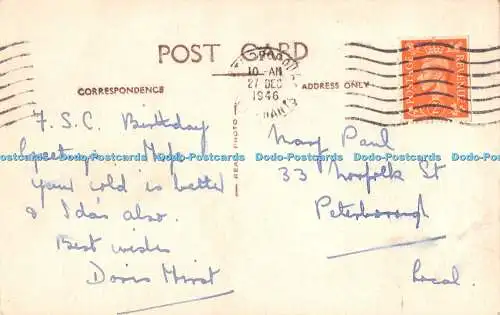 POST CARD
PETERBOROUGH
10-AM
27 DEC
1946
NORTHANTS
CORRESPONDENCE
ADDRESS ONLY
F. S. C. Birthday
your cold is better
& Ida's also.
Best wishes
Doris Hirst
REAL PHOTO
Mary Paul
33 Norfolk St
Peterborough
Local.
POSTAGE
REVENUE
Dodo-Postcards Dodo-Postcards Dodo-Postcards Dodo-Postcards Dodo-Postcards Dodo-Postcards